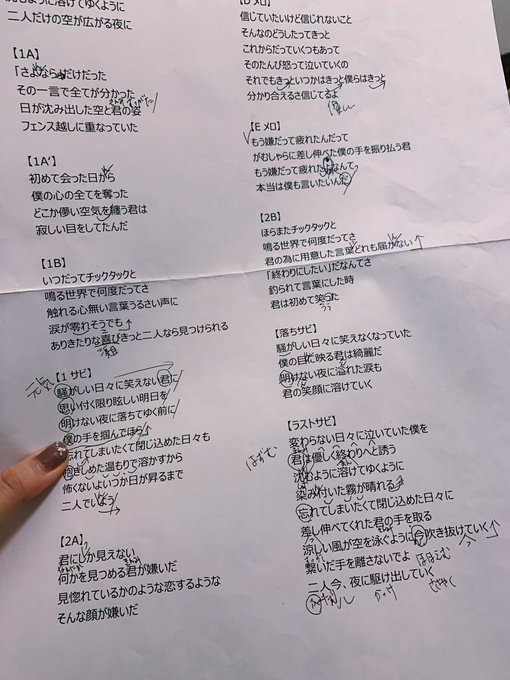 ように溶けてゆくように
二人だけの空が広がる夜に
【1A】
「さよなら」だけだった
その一言で全てが分かった
日が沈み出した空と君の姿
フェンス越しに重なっていた
【1A'】
初めて会った日から
僕の心の全てを奪った
どこか儚い空気を纏う君は
寂しい目をしてたんだ
【1B】
いつだってチックタックと
鳴る世界で何度だってさ
触れる心無い言葉うるさい声に
涙が零れそうでも
ありきたりな喜びきっと二人なら見つけられる
元気
【1 サビ】
騒がしい日々に笑えない君に
思い付く限り眩しい明日を
明けない夜に落ちてゆく前に
僕の手を掴んでほら
忘れてしまいたくて閉じ込めた日々も
抱きしめた温もりで溶かすから
怖くないよいつか日が昇るまで
二人でいよう
【2A】
君にしか見えない
何かを見つめる君が嫌いだ
見惚れているかのような恋するような
そんな顔が嫌いだ
【Dメロ】
信じていたいけど信じれないこと
そんなのどうしたってきっと
これからだっていくつもあって
そのたんび怒って泣いていくの
それでもきっといつかはきっと僕らはきっと
分かり合えるさ信じてるよ
【Eメロ】
もう嫌だって疲れたんだって
がむしゃらに差し伸べた僕の手を振り払う君
もう嫌だって疲れたよなんて
本当は僕も言いたいんだ
【2B】
ほらまたチックタックと
鳴る世界で何度だってさ
君の為に用意した言葉どれも届かない
「終わりにしたい」だなんてさ
釣られて言葉にした時
君は初めて笑った
【落ちサビ】
騒がしい日々に笑えなくなっていた
僕の目に映る君は綺麗だ
明けない夜に溢れた涙も
君の笑顔に溶けていく
【ラストサビ】
変わらない日々に泣いていた僕を
はずむ
君は優しく終わりへと誘う
沈むように溶けてゆくように
染み付いた霧が晴れる
忘れてしまいたくて閉じ込めた日々に
差し伸べてくれた君の手を取る
涼しい風が空を泳ぐように今吹き抜けていく
繋いだ手を離さないでよ
ほほえむ
二人今、夜に駆け出していく
ささやく